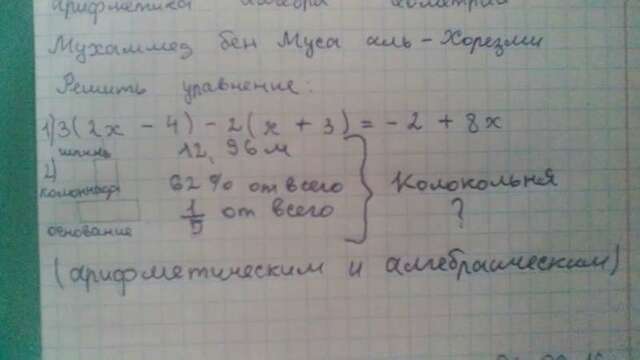 арифметика алгебра геометрия
Мухаммед бен Муса аль-Хорезми
Решить уравнение:
1) 3(2x - 4) - 2(x + 3) = -2 + 8x
шпиль 12,96 м
2)
колоннада 62% от всего } Колокольня ?
основание 1/5 от всего
(арифметическим и алгебраическим)